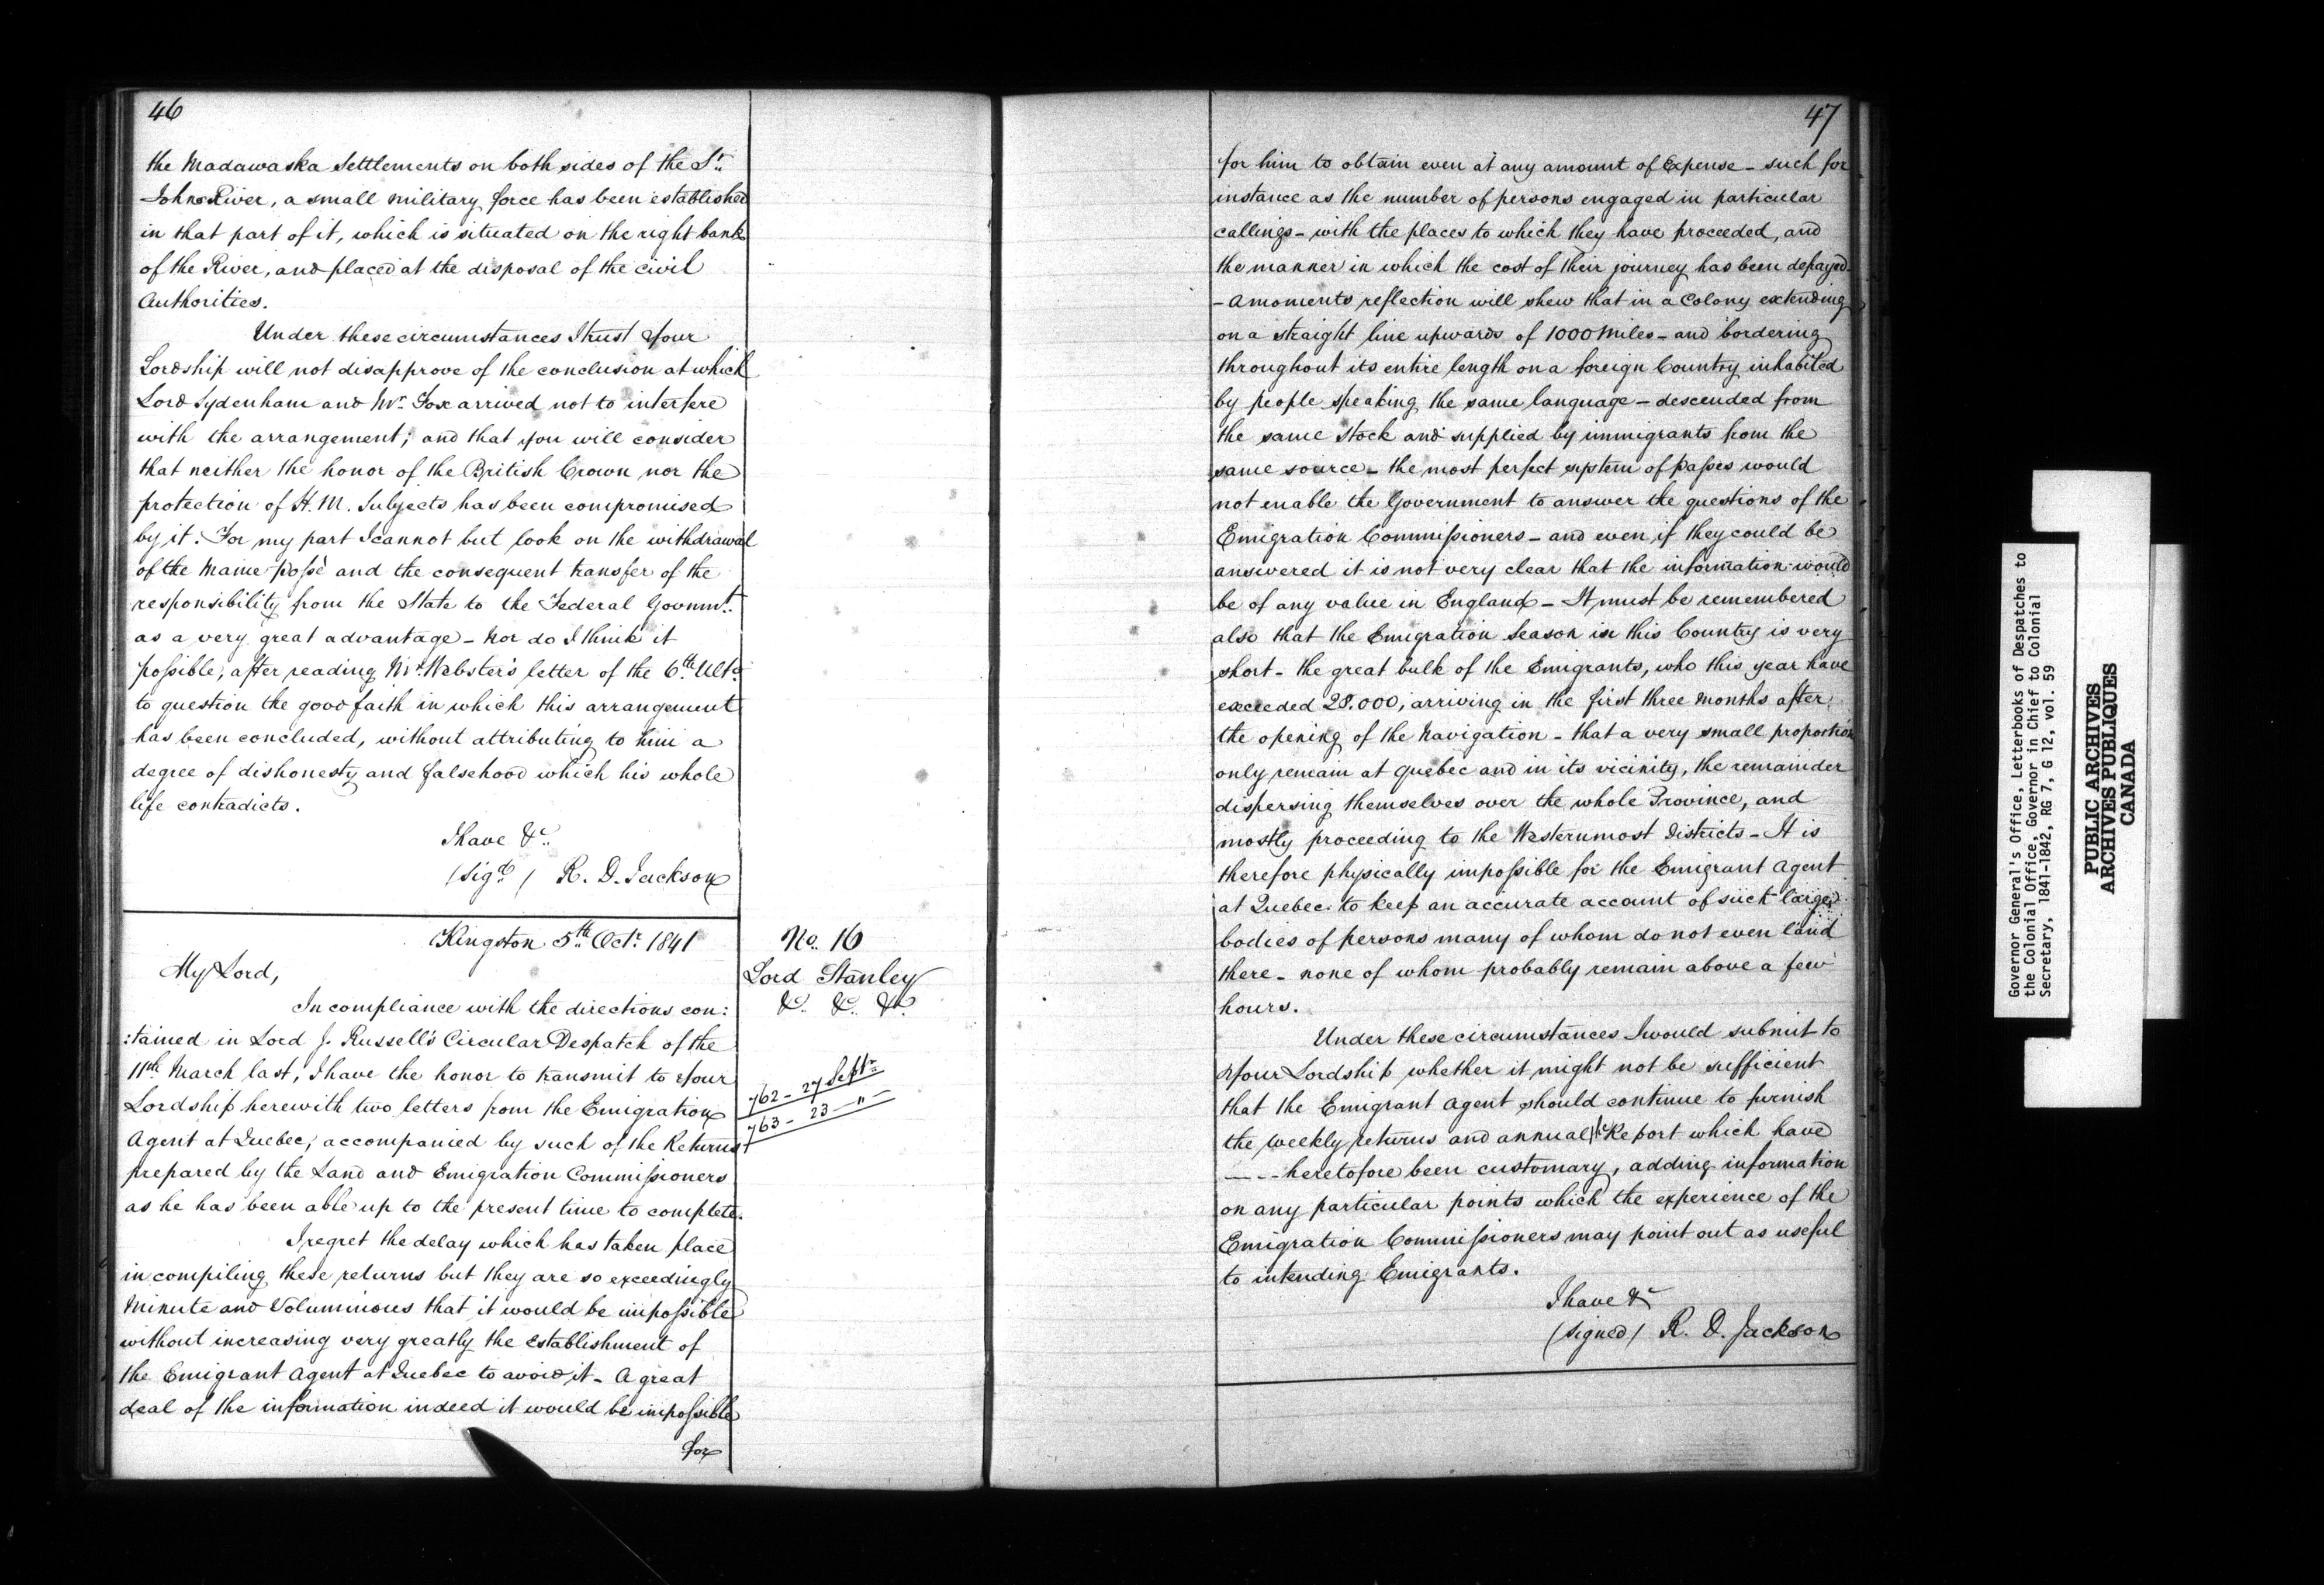 46
the Madawaska Settlements on both sides of the St.
Johns River, a small military force has been established
in that part of it, which is situated on the right bank
of the River, and placed at the disposal of the civil
Authorities.
Under these circumstances I trust Your
Lordship will not disapprove of the conclusion at which
Lord Sydenham and Mr. Fox arrived not to interfere
with the arrangement; and that you will consider
that neither the honor of the British Crown nor the
protection of H.M. Subjects has been compromised
by it. For my part I cannot but look on the withdrawal
of the Maine possé and the consequent transfer of the
responsibility from the State to the Federal Govnmt.
as a very great advantage - Nor do I think it
possible, after reading Mr. Webster's letter of the 6th Ulto.
to question the good faith in which this arrangement
has been concluded, without attributing to him a
degree of dishonesty and falsehood which his whole
life contradicts.
I have &c.
(sigd) R. D. Jackson
Kingston 5th Octr. 1841
My Lord,
In compliance with the directions con:
:tained in Lord J. Russell's Circular Despatch of the
11th March last, I have the honor to transmit to Your
Lordship herewith two letters from the Emigration
Agent at Quebec, accompanied by such of the Returns
prepared by the Land and Emigration Commissioners
as he has been able up to the present time to complete.
I regret the delay which has taken place
in compiling these returns but they are so exceedingly
Minute and Voluminous that it would be impossible
without increasing very greatly the Establishment of
the Emigrant Agent at Quebec to avoid it - A great
deal of the information indeed it would be impossible
for
No. 16
Lord Stanley
&c. &c. &c.
762 - 27 Septr.
763 - 23 - " -
47
for him to obtain even at any amount of Expense - such for
instance as the number of persons engaged in particular
callings - with the places to which they have proceeded, and
the manner in which the cost of their journey has been defrayed -
- A moments reflection will shew that in a Colony extending
on a straight line upwards of 1000 Miles - and bordering
throughout its entire length on a foreign Country inhabited
by people speaking the same language - descended from
the same stock and supplied by immigrants from the
same source - the most perfect system of passes would
not enable the Government to answer the questions of the
Emigration Commissioners - and even if they could be
answered it is not very clear that the information would
be of any value in England - It must be remembered
also that the Emigration Season in this Country is very
short - the great bulk of the Emigrants, who this year have
exceeded 28.000, arriving in the first three Months after
the opening of the Navigation - that a very small proportion
only remain at Quebec and in its vicinity, the remainder
dispersing themselves over the whole Province, and
mostly proceeding to the Westernmost Districts - It is
therefore physically impossible for the Emigrant Agent
at Quebec to keep an accurate account of such large
bodies of persons many of whom do not even land
there - none of whom probably remain above a few
hours.
Under these circumstances I would submit to
Your Lordship whether it might not be sufficient
that the Emigrant Agent should continue to furnish
the weekly returns and annual Report which have
heretofore been customary, adding information
on any particular points which the experience of the
Emigration Commissioners may point out as useful
to intending Emigrants.
I have &c
(signed) R. D. Jackson
Governor General's Office, Letterbooks of Despatches to
the Colonial Office, Governor in Chief to Colonial
Secretary, 1841-1842, RG 7, G 12, vol. 59
PUBLIC ARCHIVES
ARCHIVES PUBLIQUES
CANADA